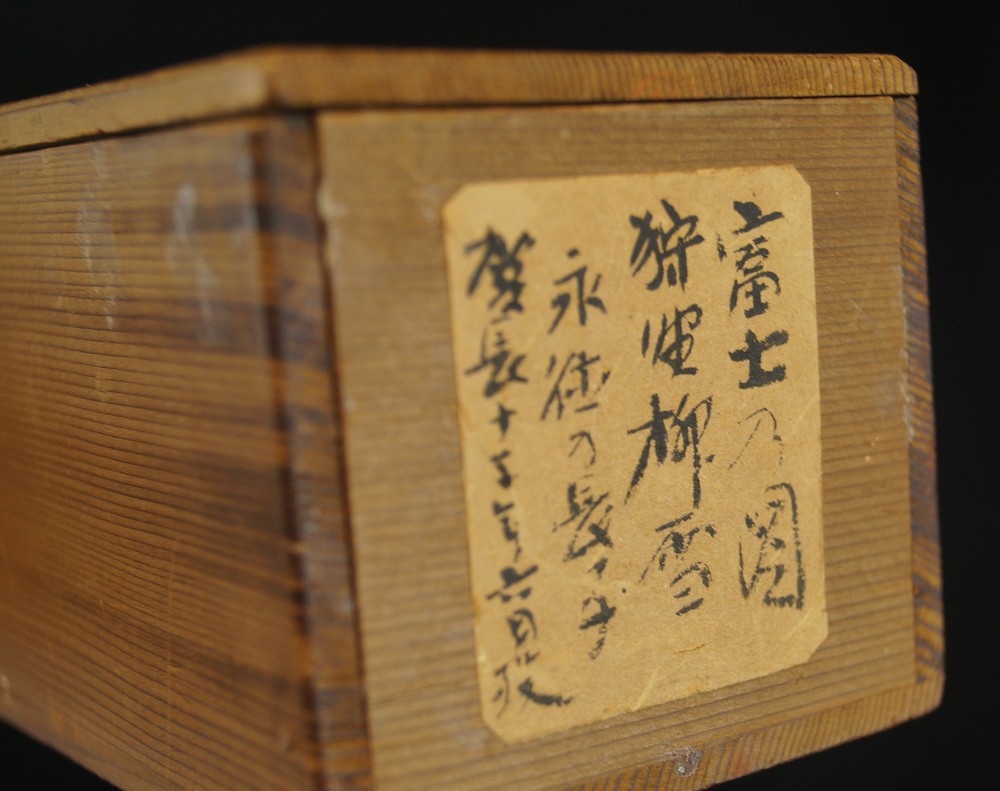 富士乃図
狩野柳雪
永徳乃長子
慶長十五年六月歿